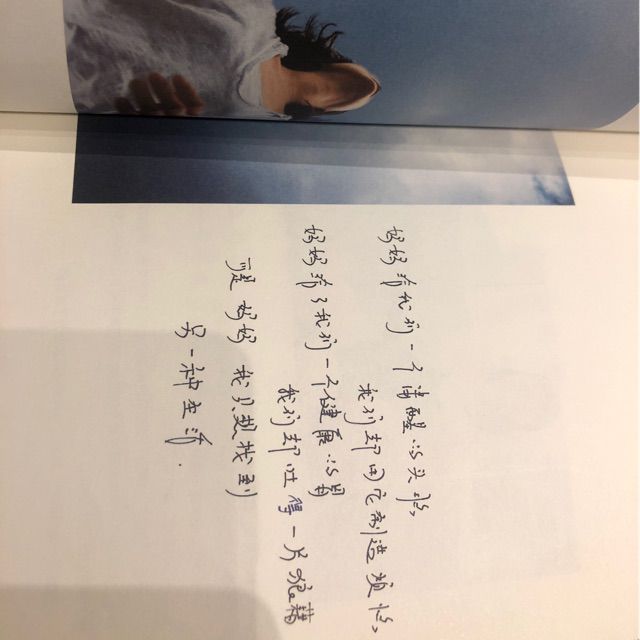 妈妈给我们一个清醒的头脑
我们却用它制造烦恼
妈妈给了我们一个健康的胃
我们却吐得一片狼藉
可是 妈妈 我只想找到
另一种生活.